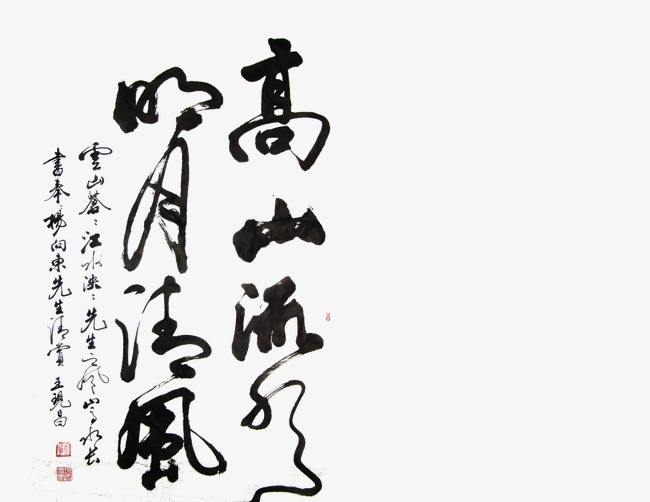 高山流水
明月清风
雲山蒼〻江水泱〻先生之风山高水长
書奉楊向東先生清賞 王現昌